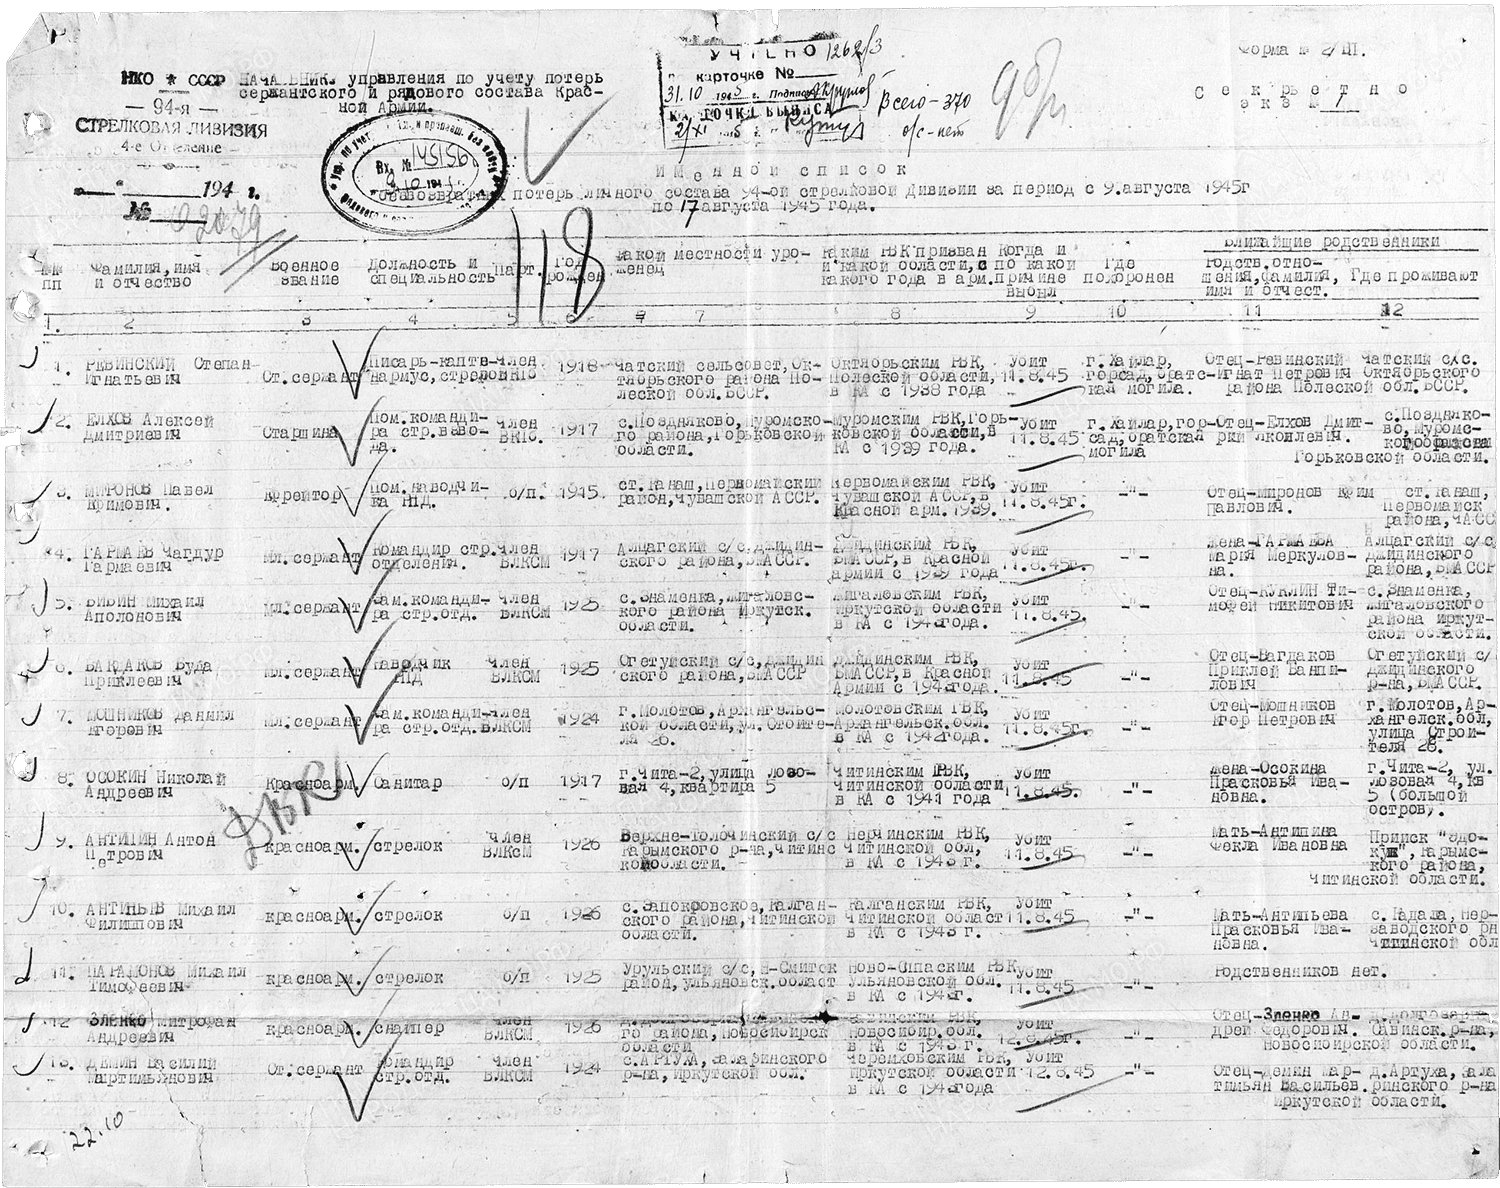 Форма № 2/Ш.
УЧТЕНО 1262/3
карточке №
31.10 1945 г. Подпись
Всего - 370
о/с - нет
Секретно
экз № 1
НКО ★ СССР
— 94-я —
СТРЕЛКОВАЯ ДИВИЗИЯ
4-е Отделение
194 г.
№ 02079
НАЧАЛЬНИК управления по учету потерь
сержантского и рядового состава Крас-
ной Армии.
Вх. №
Именной список
безвозвратных потерь личного состава 94-ой стрелковой дивизии за период с 9.августа 1945г
по 17 августа 1945 года.
118
№№ пп
Фамилия,имя и отчество
Военное звание
Должность и специальность
Парт.
Год рожден
какой местности уро-женец
Каким РВК призван и какой области, с какого года в арм.
Когда и по какой причине выбыл
Где похоронен
Ближайшие родственники
Родств.отно-шения,фамилия, имя и отчест.
Где проживают
1. 2 3 4 5 6 7 8 9 10 11 12
1. РЕВИНСКИЙ Степан Игнатьевич
Ст.сержант
Писарь-капте-нармус,стрелок
Член ВКПб
1918
Чатский сельсовет,Ок-тябрьского района По-леской обл.БССР.
Октябрьским РВК, Полеской области, в КА с 1938 года
Убит 11.8.45
г.Хайлар, горсад,братс-кая могила.
Отец-Ревинский Игнат Петрович
Чатский с/с. Октябрьского района Полеской обл. БССР.
2. ЕЛХОВ Алексей Дмитриевич
Старшина
Пом.команди-ра стр.взво-да.
Член ВКПб.
1917
с.Поздняково,Муромско-го района,Горьковской области.
Муромским РВК,Горь-ковской области,в КА с 1939 года.
Убит 11.8.45
г.Хайлар,гор-сад,братская могила
Отец-Елхов Дмит-рий Яковлевич.
с.Поздняко-во,Муромс-кого района Горьковской области.
3. МИРОНОВ Павел Ефимович.
Ефрейтор
Пом.наводчи-ка ПТД.
б/п.
1915
ст.Канаш,Первомайский район,Чувашской АССР.
Первомайским РВК, Чувашской АССР,в Красной арм.1939.
Убит 11.8.45г.
-"-
Отец-Миронов Ефим Павлович.
ст.Канаш, Первомайск района,ЧАСС
4. ГАРМАЕВ Чагдур Гармаевич
Мл.сержант
Командир стр. отделения.
Член ВЛКСМ
1917
Алцагский с/с,Джидин-ского района,БМАССР.
Джидинским РВК, БМАССР,в Красной армии с 1939 года
Убит 11.8.45г.
-"-
Жена-ГАРМАЕВА Мария Меркулов-на.
Алцагский с/с Джидинского района,БМАССР.
5. БИВИН Михаил Аполонович
Мл.сержант
Зам.команди-ра стр.отд.
Член ВЛКСМ
1925
с.Знаменка,Жигаловс-кого района Иркутск. области.
Жигаловским РВК, Иркутской области в КА с 1943года.
Убит 11.8.45г.
-"-
Отец-КУКЛИН Ти-мофей Никитович
с.Знаменка, Жигаловского района Иркут-ской области.
6. БАГДАКОВ Буда Приклеевич
Мл.сержант
Наводчик ПТД
Член ВЛКСМ
1925
Огетуйский с/с,Джидин ского района,БМАССР
Джидинским РВК, БМАССР,в Красной Армии с 1943года.
Убит 11.8.45
-"-
Отец-Вагдаков Приклей Ванпи-лович
Огетуйский с/ Джидинского р-на,БМАССР.
7. МОШНИКОВ Даниил Егорович
Мл.сержант
Зам.команди-ра стр.отд.
Член ВЛКСМ
1924
г.Молотов,Архангельс-кой области,ул.Стоите-ля 26.
Молотовским ГВК, Архангельск.обл. в КА с 1942года.
Убит 11.8.45г.
-"-
Отец-Мошников Егор Петрович
г.Молотов,Ар-хангелск.обл, улица Строи-теля 26.
8. ОСОКИН Николай Андреевич
Красноарм.
Санитар
б/п
1917
г.Чита-2,улица Лозо-вая 4,квартира 5
Читинским ГВК, Читинской области в КА с 1941 года
Убит 11.8.45.
-"-
Жена-Осокина Прасковья Ива-новна.
г.Чита-2, ул. Лозовая 4,кв 5 (большой остров).
9. АНТИПИН Антон Петрович
красноарм.
стрелок
Член ВЛКСМ
1926
Верхне-Толочинский с/с Карымского р-на,Читинс кой области.
Нерчинским РВК, Читинской обл, в КА с 1943 г.
Убит 11.8.45
-"-
Мать-Антипина Фекла Ивановна
Прииск Карымс-кого района, Читинской области.
10. АНТИПЬЕВ Михаил Филиппович
красноарм.
стрелок
б/п
1926
с.Запокровское,Калган-ского района,Читинской области.
Калганским РВК, Читинской област в КА с 1943 г.
Убит 11.8.45
-"-
Мать-Антипьева Прасковья Ива-новна.
с.Кадала,Нер-заводского рн Читинской обл
11. ПАРАМОНОВ Михаил Тимофеевич
красноарм.
стрелок
б/п
1925
Урульский с/с, район,Ульяновск.област
Ново-Спаским РВК Ульяновской обл. в КА с 1943г.
Убит 11.8.45
-"-
Родственников нет.
12 ЗЛЕНКО Митрофан Андреевич
красноарм.
снайпер
Член ВЛКСМ
1926
го района,Новосибирск области
Новосибир.обл. в КА с 1943 г.
Убит 12.8.45г.
-"-
Отец-Зленко Ан-дрей Федорович.
Новосибирской области.
13. ДЕМИН Василий Мартимьянович
Ст.сержант
Командир стр.отд.
Член ВЛКСМ
1924
с.АРТУХА,Заларинского р-на,Иркутской обл.
Черемховским РВК, Иркутской области в КА с 1943года
Убит 12.8.45
-"-
Отец-Демин Мар-тимьян Васильев.
д.Артуха,Зала ринского р-на Иркутской области.
22.10